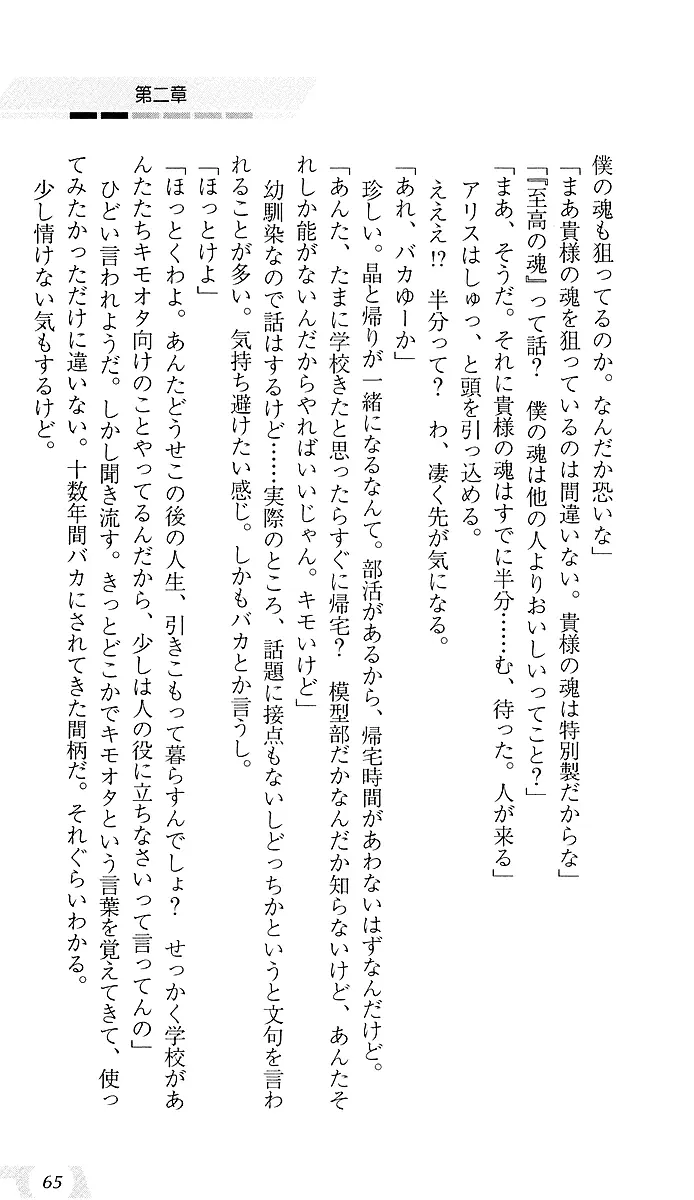 第二章
僕の魂も狙ってるのか。なんだか恐いな」
「まあ貴様の魂を狙っているのは間違いない。貴様の魂は特別製だからな」
「『至高の魂』って話？　僕の魂は他の人よりおいしいってこと？」
「まあ、そうだ。それに貴様の魂はすでに半分……む、待った。人が来る」
　アリスはしゅっ、と頭を引っ込める。
　えええ!?　半分って？　わ、凄く先が気になる。
「あれ、バカゆーか」
　珍しい。晶と帰りが一緒になるなんて。部活があるから、帰宅時間があわないはずなんだけど。
「あんた、たまに学校きたと思ったらすぐに帰宅？　模型部だかなんだか知らないけど、あんたそ
れしか能がないんだからやればいいじゃん。キモいけど」
　幼馴染なので話はするけど……実際のところ、話題に接点もないしどっちかというと文句を言わ
れることが多い。気持ち避けたい感じ。しかもバカとか言うし。
「ほっとけよ」
「ほっとくわよ。あんたどうせこの後の人生、引きこもって暮らすんでしょ？　せっかく学校があ
んたたちキモオタ向けのことやってるんだから、少しは人の役に立ちなさいって言ってんの」
　ひどい言われようだ。しかし聞き流す。きっとどこかでキモオタという言葉を覚えてきて、使っ
てみたかっただけに違いない。十数年間バカにされてきた間柄だ。それぐらいわかる。
　少し情けない気もするけど。
65